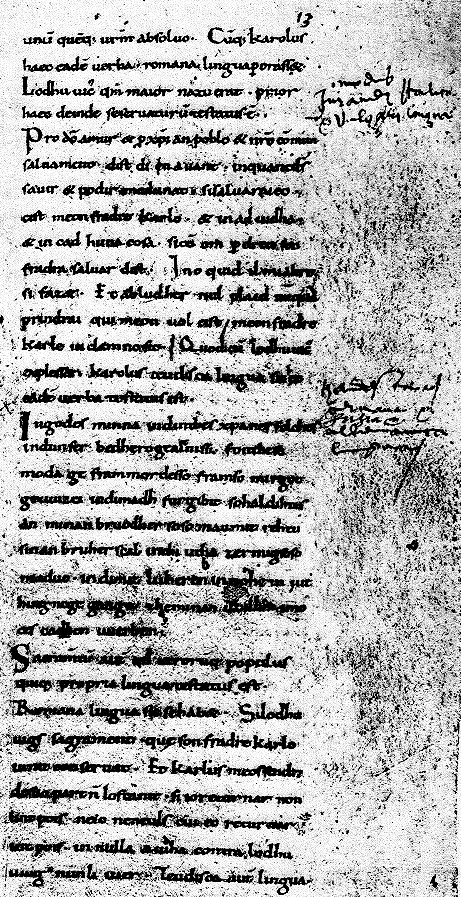 13
unū quēq; ur̄m absoluo. Cūq; karolus
haec eadē uerba romana lingua perorasset.
Lodhuuic' qm̄ maior natu erat. prior
haec deinde se seruaturū testatus ē.
Pro dō amur & p xp̄ian poblo & nr̄o cōmun
saluament. dist di en auant. inquantds
sauir & podir medunat. sisaluaraieo.
cist meon fradre karlo. & in ad iudha.
& in cad huna cosa. sicū om p dreit son
fradra saluar dist. Ino quid il mialtre
si fazet. Et abludher nul plaid nūquā
prindrai qui meon uol cist meon fradre
karle in damno sit. Quod cū lodhuuic'
explesset. karolus teudisca lingua sic hec
eadē uerba testatus est.
Ingodes minna indinthes xp̄anes folches
indunser bedhero gealtnissi. fonthese
moda ge frammordesso framso mirgot
geuuizci indimadh furgibit sohaldihtes
an minan bruodher soso manmit rehtu
sinan bruher scal inthi utha zermigsoso
maduo. indimit luheren innohein iut
hing nege ganga. zheminan uuillon imo
ce scadhen uuerhen.
Sacramentū autē qd utrorūq; populus
quiq; propria lingua testatus est.
Romana lingua sic se habet. Silodhu
uigs sagrament. que son fradre karlo
iurat conseruat. Et karlus meossendra
desuo part n̄ lostanit. si ioreturnar non
lint pois. neio neneuls cui eo returnar
int pois. in nulla aiudha contra lodhu
uuig nunli iuer. Teudisca autē lingua.